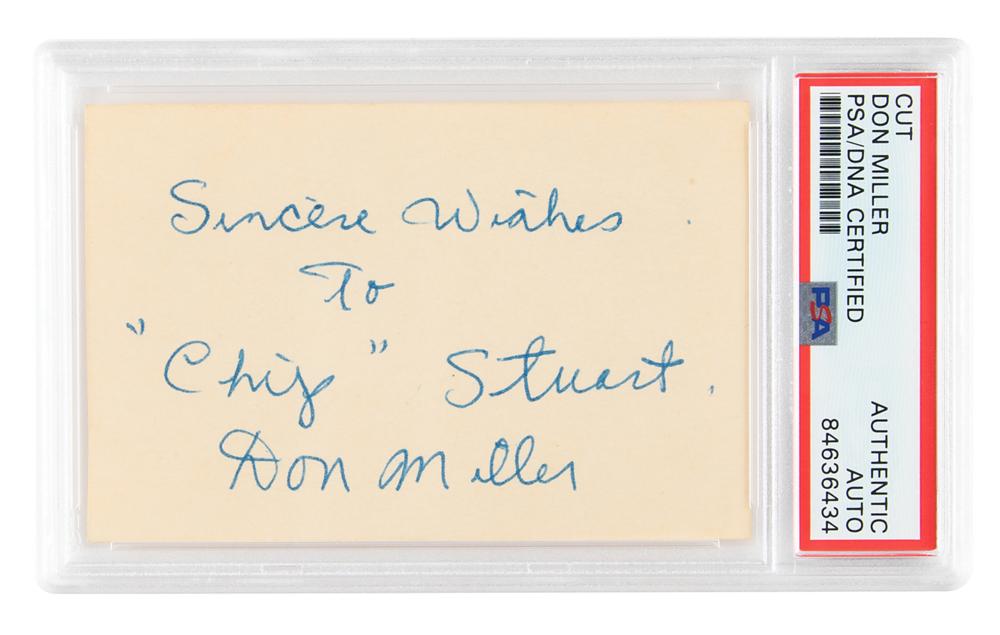 Sincere Wishes
To
"Chip" Stuart.
Don Miller
CUT
DON MILLER
PSA/DNA CERTIFIED
PSA
AUTHENTIC
AUTO
84636434